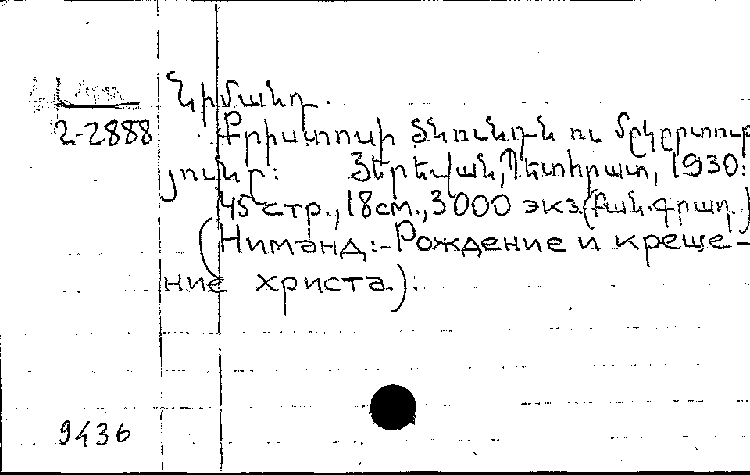 Նիմանդ.
2-2888 Քրիստոսի ծնունդն ու մկրտութ
յունը: Յերեվան, Պետհրատ, 1930:
45 стр., 18см., 3000 экз. (բան. գրադ.)
(Ниманд:-Рождение и креще-
ние христа.):
9436